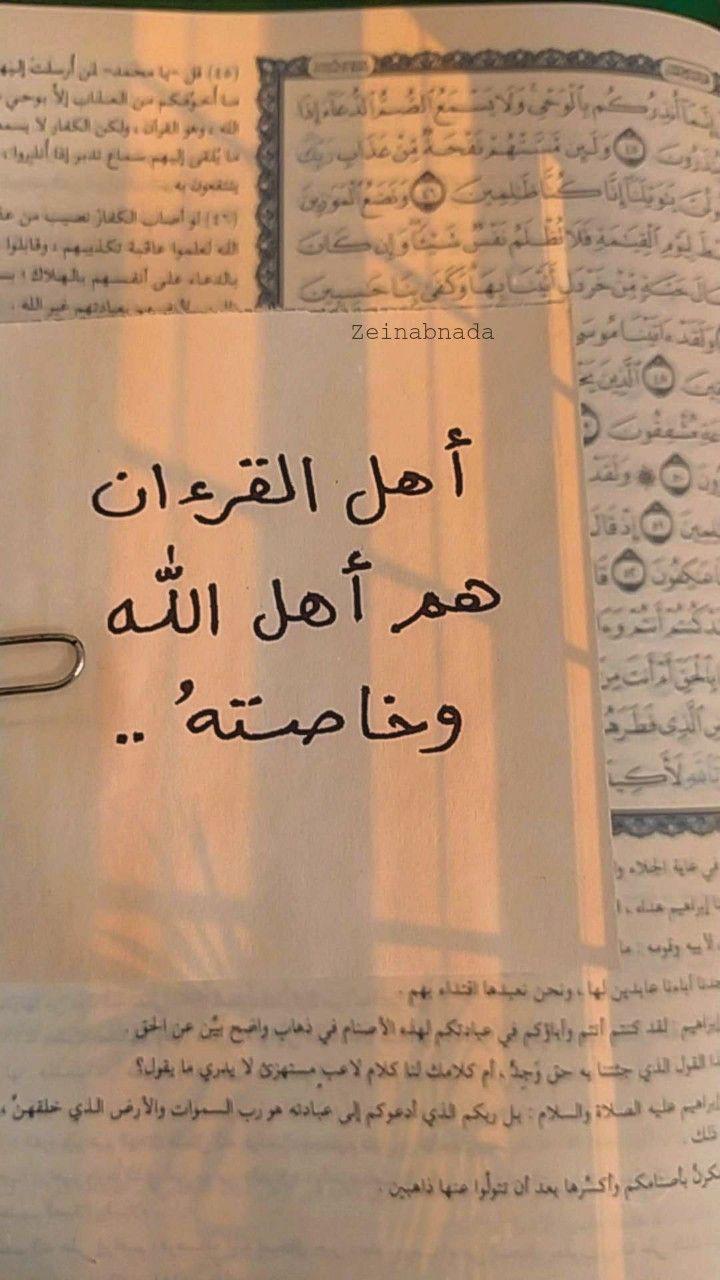 (٤٥) قل -يا محمد- لمن أرسلت إليهم
ما أخوفكم من العذاب إلا بوحي
الله ، وهو القرآن ، ولكن الكفار لا
ما يُلقى إليهم سماع تدبر إذا أُنذروا ،
ينتفعون به .
(٤٦) لو أصاب الكفار نصيب من
الله لعلموا عاقبة تكذيبهم ، وقابلوا
بالدعاء على أنفسهم بالهلاك ؛
بعبادتهم غير الله .
إِنَّمَا أُنذِرُكُم بِالْوَحْيِ وَلَا يَسْمَعُ الصُّمُّ الدُّعَاءَ إِذَا
٤٥ وَلَئِن مَّسَّتْهُمْ نَفْحَةٌ مِّنْ عَذَابِ رَبِّكَ
يَٰوَيْلَنَا إِنَّا كُنَّا ظَٰلِمِينَ ٤٦ وَنَضَعُ الْمَوَٰزِينَ
لِيَوْمِ الْقِيَٰمَةِ فَلَا تُظْلَمُ نَفْسٌ شَيْـًٔا وَإِن كَانَ
حَبَّةٍ مِّنْ خَرْدَلٍ أَتَيْنَا بِهَا وَكَفَىٰ بِنَا حَٰسِبِينَ
وَلَقَدْ ءَاتَيْنَا مُوسَى
٤٨ الَّذِينَ
مُشْفِقُونَ
وَلَقَدْ
٥١ إِذْ قَالَ
عَٰكِفُونَ ٥٢
كُنتُمْ أَنتُمْ
بِالْحَقِّ أَمْ أَنتَ مِنَ
الَّذِي فَطَرَهُنَّ
لَأَكِيدَنَّ
Zeinabnada
أهل القرءان
هم أهل الله
وخاصتهُ ..
في غاية الجلاء
إبراهيم هداه ،
لأبيه وقومه : ما
آباءنا عابدين لها ، ونحن نعبدها اقتداء بهم .
إبراهيم : لقد كنتم أنتم وآباؤكم في عبادتكم لهذه الأصنام في ذهاب واضح بيّن عن الحق .
القول الذي جئتنا به حق وَجِدٌّ ، أم كلامك لنا كلام لاعبٍ مستهزئ لا يدري ما يقول؟
إبراهيم عليه الصلاة والسلام : بل ربكم الذي أدعوكم إلى عبادته هو رب السموات والأرض الذي خلقهنَّ ،
ذلك .
بأصنامكم وأكسِّرها بعد أن تتولَّوا عنها ذاهبين .